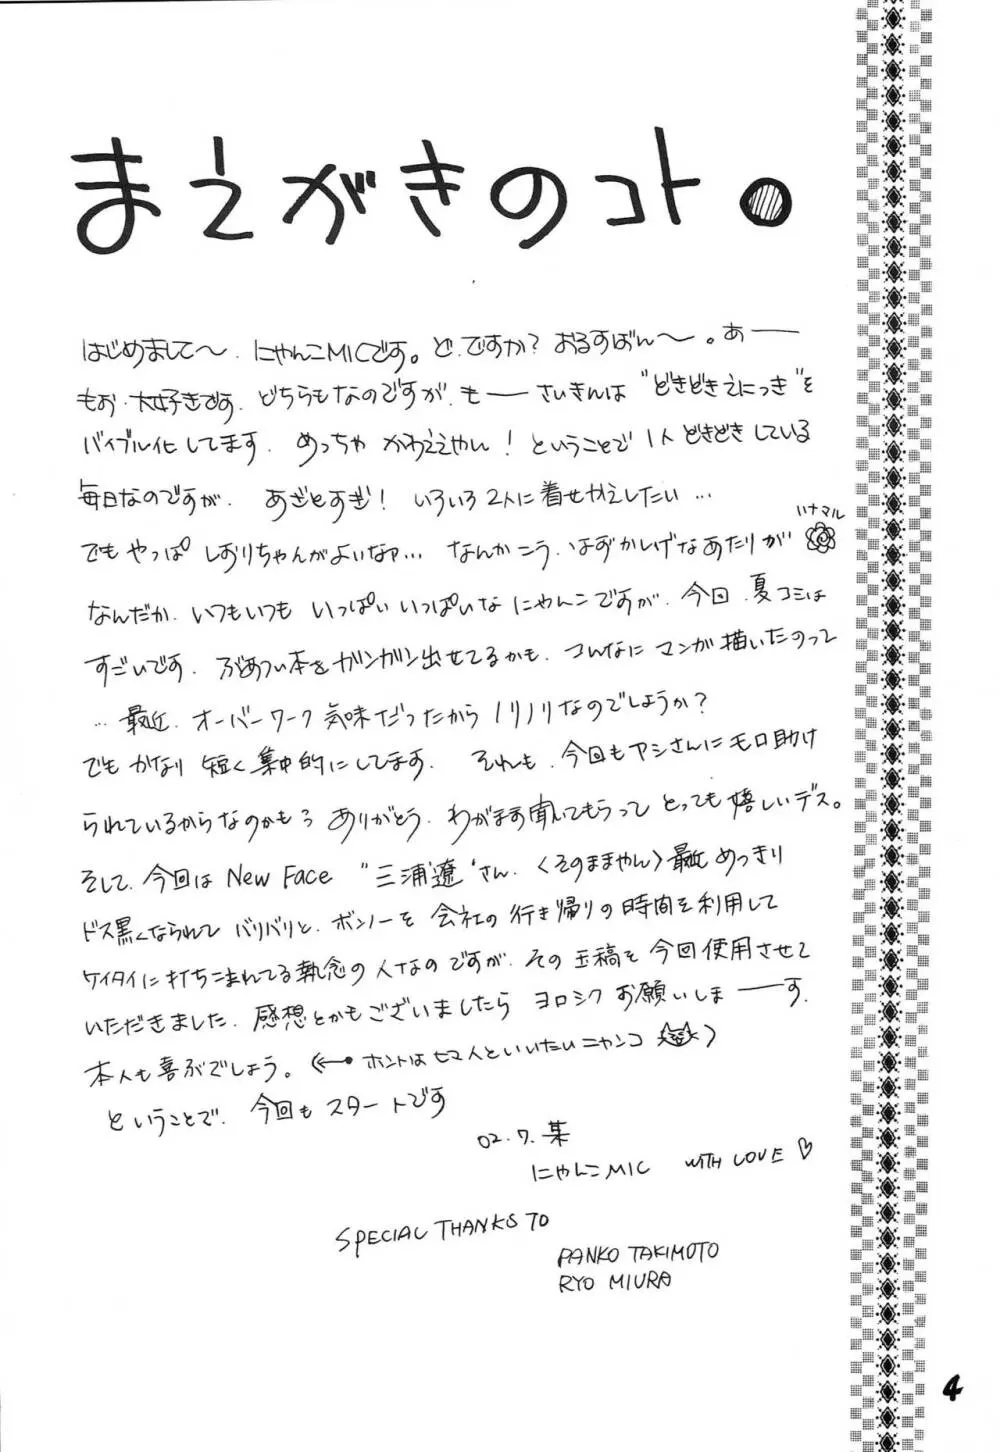 まえがきのコト。
はじめまして〜、にゃんこMICです。ど、ですか?おるすばん〜。あー
もお、大好きです。どちらもなのですが、もーさいきんは"どきどきえにっき"を
バイブル化してます。めっちゃかわええやん!ということで1人どきどきしている
毎日なのですが、あざとすぎ!いろいろ2人に着せかえしたい…
ハナマル
でもやっぱしおりちゃんがよいなァ…なんかこう、はずかしげなあたりが
なんだか、いつもいつもいっぱいいっぱいなにゃんこですが、今回、夏コミは
すごいです。ぶあつい本をガンガン出せてるかも、こんなにマンガ描いたのって
…最近、オーバーワーク気味だったからノリノリなのでしょうか?
でもかなり短く集中的にしてます。それも、今回もアシさんにモロ助け
られているからなのかも?ありがとう、わがまま聞いてもらってとっても嬉しいデス。
そして、今回はNew Face "三浦遼"さん、〈そのままやん〉最近めっきり
ドス黒くなられてバリバリと、ボンノーを会社の行き帰りの時間を利用して
ケイタイに打ちこまれてる執念の人なのですが、その玉稿を今回使用させて
いただきました。感想とかもございましたらヨロシクお願いしまーす。
本人も喜ぶでしょう。(←ホントはセマ人といいたいニャンコ)
ということで、今回もスタートです
02.7.某
にゃんこMIC WITH LOVE♡
SPECIAL THANKS TO
PANKO TAKIMOTO
RYO MIURA
4